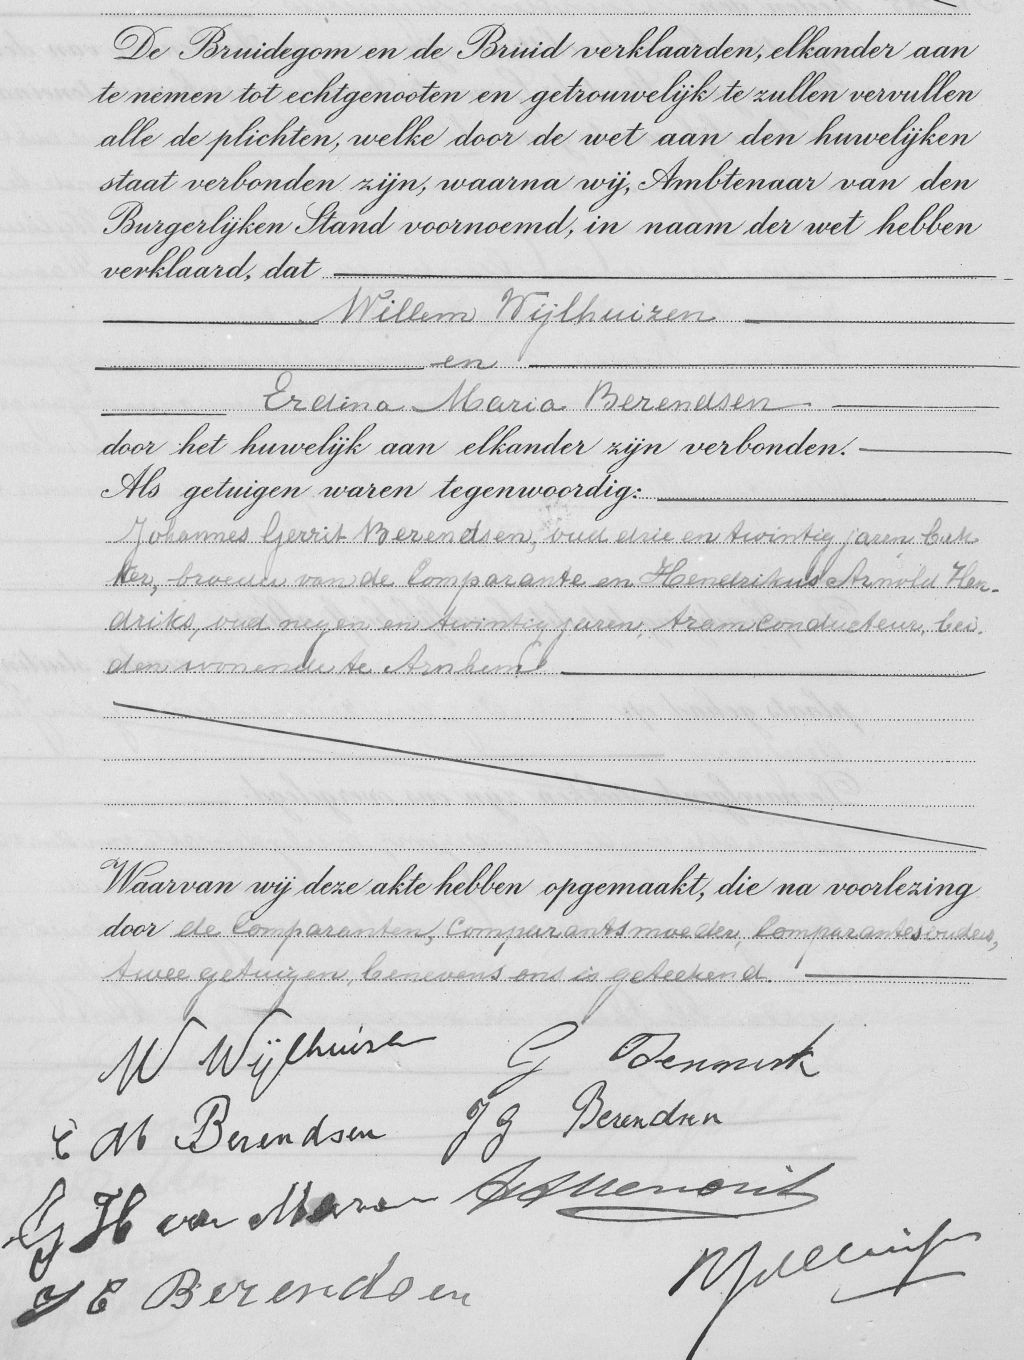 De Bruidegom en de Bruid verklaarden, elkander aan
te nemen tot echtgenooten en getrouwelijk te zullen vervullen
alle de plichten, welke door de wet aan den huwelijken
staat verbonden zijn, waarna wij, Ambtenaar van den
Burgerlijken Stand voornoemd, in naam der wet hebben
verklaard, dat
Willem Wijlhuizen
en
Erdina Maria Berendsen
door het huwelijk aan elkander zijn verbonden.
Als getuigen waren tegenwoordig:
Johannes Gerrit Berendsen, oud drie en twintig jaren, bak
ker, broeder van de Comparante en Hendrikus Arnold Hen-
driks, oud negen en twintig jaren, tramconducteur, bei.
den wonende te Arnhem
Waarvan wij deze akte hebben opgemaakt, die na voorlezing
door de Comparanten, Comparants moeder, Comparantes ouders,
twee getuigen, benevens ons is geteekend.
W Wijlhuizen G
E M Berendsen J G Berendsen
G H van Maren
J E Berendsen